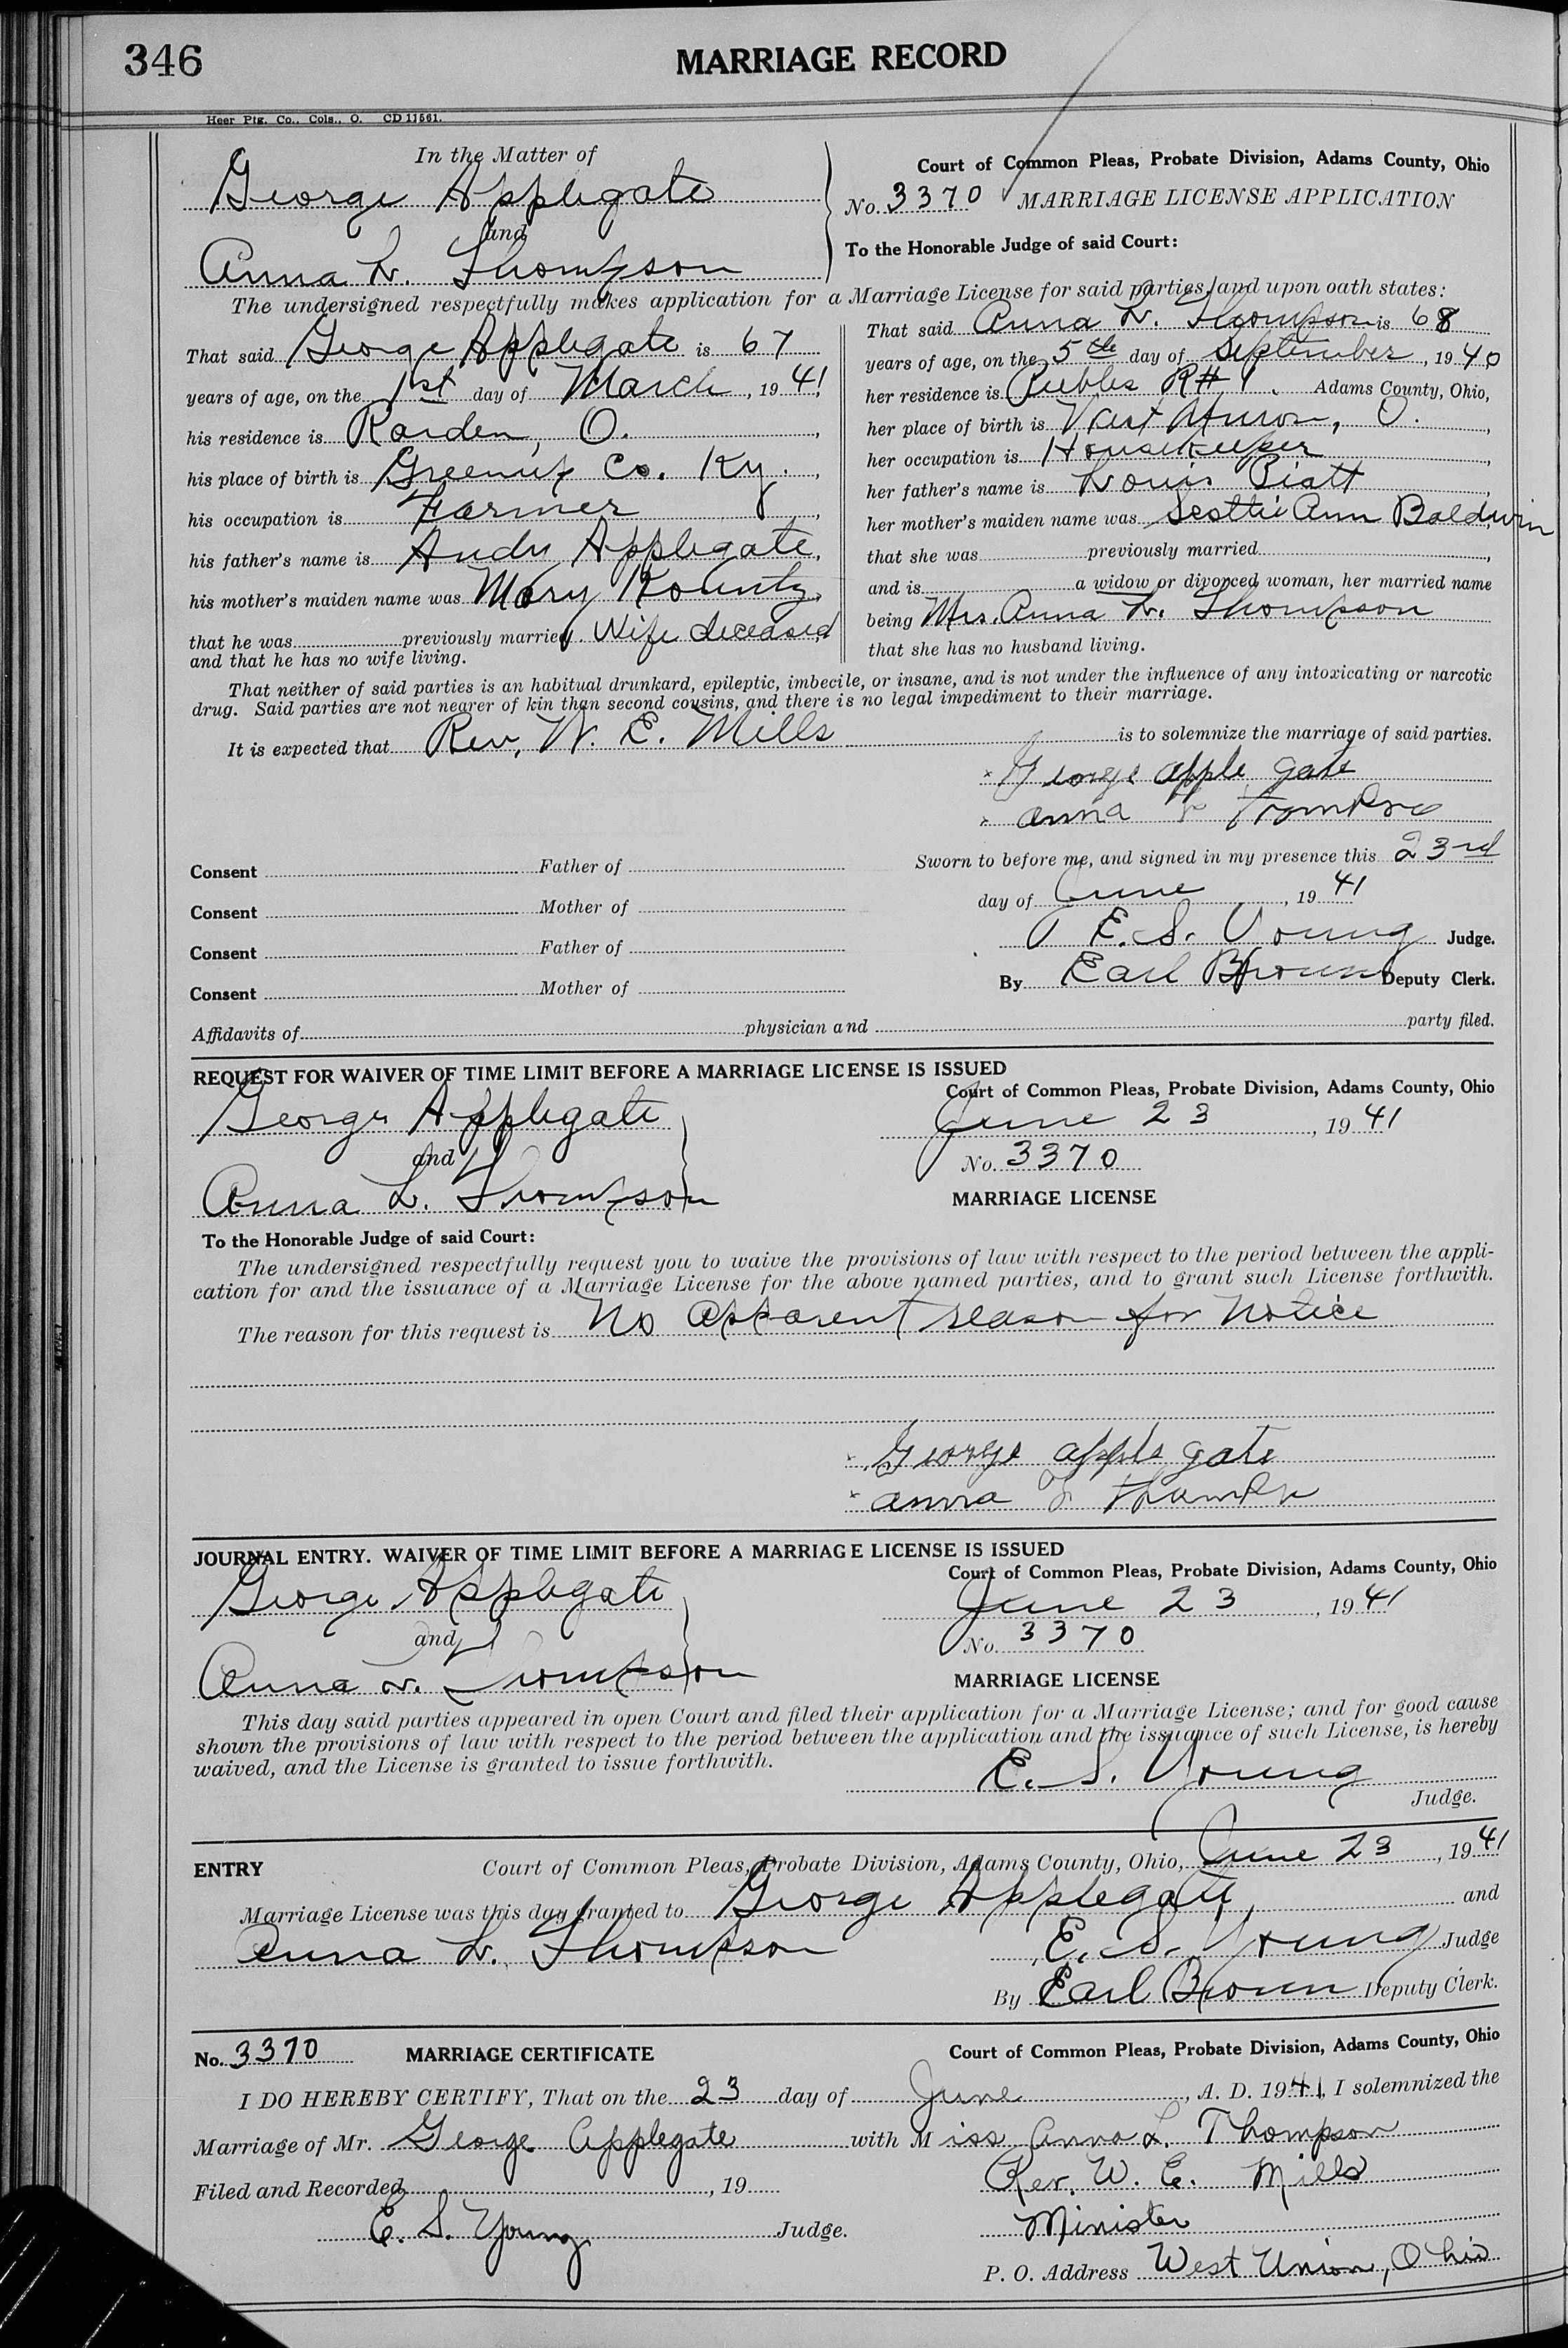 346
MARRIAGE RECORD
Heer Ptg. Co., Cols., O. CD 11561.
In the Matter of
George Applegate
and
Anna L. Thompson
Court of Common Pleas, Probate Division, Adams County, Ohio
No. 3370 MARRIAGE LICENSE APPLICATION
To the Honorable Judge of said Court:
The undersigned respectfully makes application for a Marriage License for said parties, and upon oath states:
That said George Applegate is 67
years of age, on the 1st day of March, 1941,
his residence is Rarden, O.,
his place of birth is Greenup Co. Ky.,
his occupation is Farmer,
his father's name is Andy Applegate,
his mother's maiden name was Mary
that he was previously married Wife deceased
and that he has no wife living.
That said Anna L. Thompson is 68
years of age, on the 5th day of September, 1940
her residence is Peebles R#1. Adams County, Ohio,
her place of birth is West Union, O.,
her occupation is Housekeeper,
her father's name is Louis Piatt,
her mother's maiden name was Ann Baldwin
that she was previously married,
and is a widow or divorced woman, her married name
being Mrs. Anna L. Thompson
that she has no husband living.
That neither of said parties is an habitual drunkard, epileptic, imbecile, or insane, and is not under the influence of any intoxicating or narcotic
drug. Said parties are not nearer of kin than second cousins, and there is no legal impediment to their marriage.
It is expected that Rev. W. E. Mills is to solemnize the marriage of said parties.
x George apple gate
x anna
Sworn to before me, and signed in my presence this 23rd
day of June, 1941
E. S. Young Judge.
By Earl Brown Deputy Clerk.
Consent Father of
Consent Mother of
Consent Father of
Consent Mother of
Affidavits of physician and party filed.
REQUEST FOR WAIVER OF TIME LIMIT BEFORE A MARRIAGE LICENSE IS ISSUED
Court of Common Pleas, Probate Division, Adams County, Ohio
George Applegate
and
Anna L. Thompson
June 23, 1941
No. 3370
MARRIAGE LICENSE
To the Honorable Judge of said Court:
The undersigned respectfully request you to waive the provisions of law with respect to the period between the appli-
cation for and the issuance of a Marriage License for the above named parties, and to grant such License forthwith.
The reason for this request is No apparent reason for Notice
x George apple gate
x anna
JOURNAL ENTRY. WAIVER OF TIME LIMIT BEFORE A MARRIAGE LICENSE IS ISSUED
Court of Common Pleas, Probate Division, Adams County, Ohio
George Applegate
and
Anna L. Thompson
June 23, 1941
No. 3370
MARRIAGE LICENSE
This day said parties appeared in open Court and filed their application for a Marriage License; and for good cause
shown the provisions of law with respect to the period between the application and the issuance of such License, is hereby
waived, and the License is granted to issue forthwith.
E. S. Young
Judge.
ENTRY Court of Common Pleas, Probate Division, Adams County, Ohio, June 23, 1941
Marriage License was this day granted to George Applegate and
Anna L. Thompson
E. S. Young Judge
By Earl Brown Deputy Clerk.
No. 3370 MARRIAGE CERTIFICATE Court of Common Pleas, Probate Division, Adams County, Ohio
I DO HEREBY CERTIFY, That on the 23 day of June, A. D. 1941, I solemnized the
Marriage of Mr. George Applegate with Miss Anna L. Thompson
Filed and Recorded, 19
Rev. W. E. Mills
E. S. Young Judge.
Minister
P. O. Address West Union, Ohio